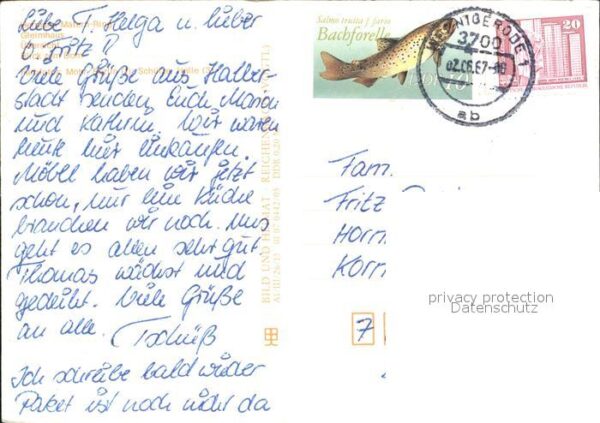 Liebe T. Helga u. lieber
O. Fritz!
Viele Grüße aus Halber-
stadt senden Euch Marion
und Kathrin. Wir waren
heute hier einkaufen.
Möbel haben wir jetzt
schon, nur eine Küche
brauchen wir noch. Uns
geht es allen sehr gut
Thomas wächst und
gedeiht. Viele Grüße
an alle. Tschüß
Ich schreibe bald wieder
Paket ist noch nicht da
BILD UND HEIMAT REICHENBACH
Salmo trutta f. fario
Bachforelle
DDR 10
WERNIGERODE 1
3700
ab
20
Fam.
Fritz
Horn
Korn
7
privacy protection
Datenschutz